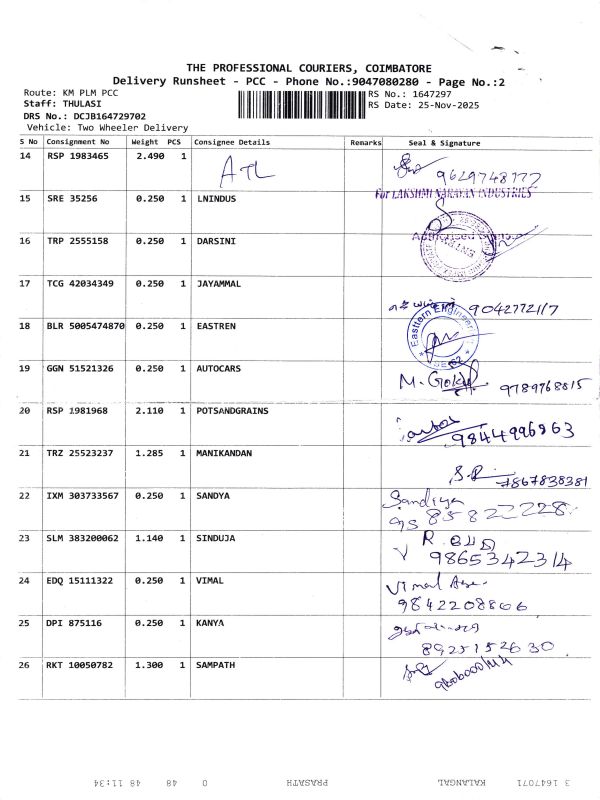 THE PROFESSIONAL COURIERS, COIMBATORE
Delivery Runsheet - PCC - Phone No.:9047080280 - Page No.:2
Route: KM PLM PCC
RS No.: 1647297
Staff: THULASI
RS Date: 25-Nov-2025
DRS No.: DCJB164729702
Vehicle: Two Wheeler Delivery
S No Consignment No Weight PCS Consignee Details Remarks Seal & Signature
14 RSP 1983465 2.490 1 ATL 9629748777
15 SRE 35256 0.250 1 LNINDUS For LAKSHMI NARAYAN INDUSTRIES
16 TRP 2555158 0.250 1 DARSINI
17 TCG 42034349 0.250 1 JAYAMMAL 9042772117
18 BLR 5005474870 0.250 1 EASTREN Eastern Engineer
19 GGN 51521326 0.250 1 AUTOCARS M. Gokul 9789768815
20 RSP 1981968 2.110 1 POTSANDGRAINS 9844996863
21 TRZ 25523237 1.285 1 MANIKANDAN 7867838381
22 IXM 303733567 0.250 1 SANDYA Sandiya
95 85822228
23 SLM 383200062 1.140 1 SINDUJA
9865342314
24 EDQ 15111322 0.250 1 VIMAL Vimal
9842208806
25 DPI 875116 0.250 1 KANYA
8925152630
26 RKT 10050782 1.300 1 SAMPATH
3 1647071 KALANGAL PRASATH 0 48 48 11:34